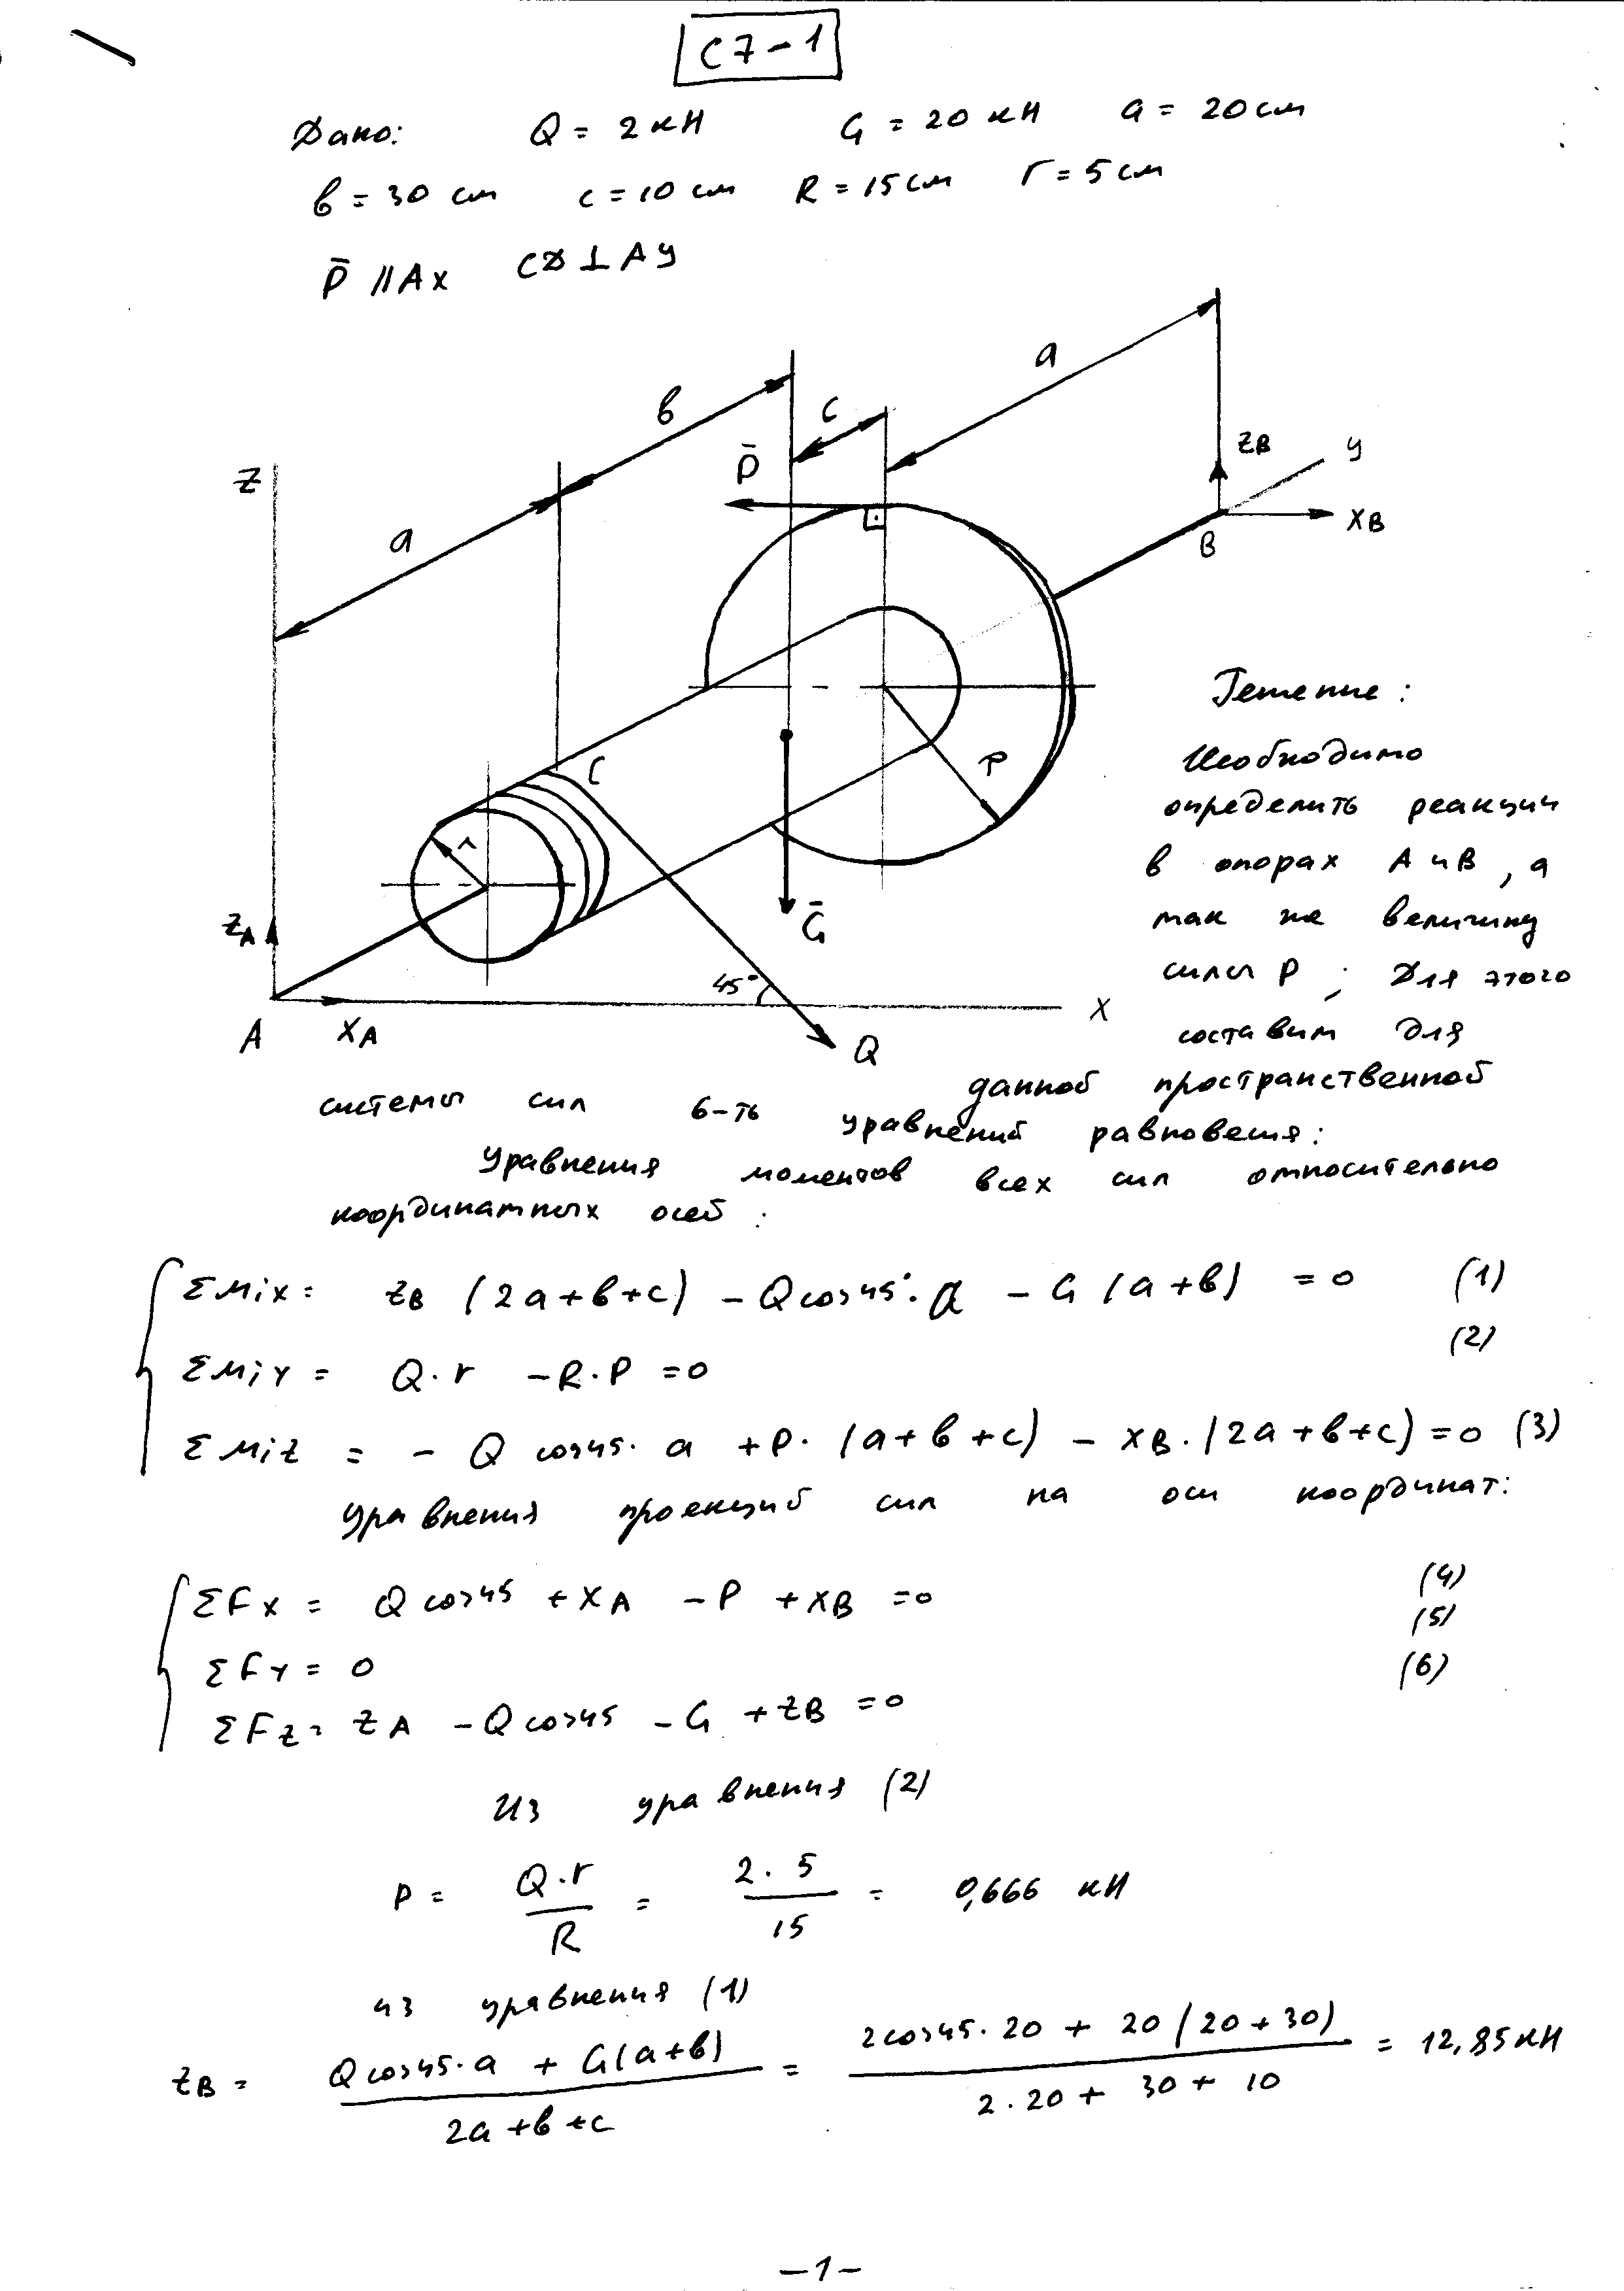 С7-1
Дано: Q = 2 кН G = 20 кН a = 20 см
в = 30 см c = 10 см R = 15 см r = 5 см
P̄ // Ax CD ⊥ AY
a
в
c
a
P̄
Z
ZB
y
XB
B
a
C
R
r
Ḡ
ZA
45°
A
XA
X
Q
Решение:
Необходимо
определить реакции
в опорах А и В, а
так же величину
силы P. Для этого
составим для
данной пространственной
системы сил 6-ть уравнений равновесия:
Уравнения моментов всех сил относительно
координатных осей:
ΣMix = ZB (2a+в+c) - Q cos45°·a - G (a+в) = 0 (1)
ΣMiY = Q·r - R·P = 0 (2)
ΣMiZ = - Q cos45·a + P·(a+в+c) - XB·(2a+в+c) = 0 (3)
Уравнения проекций сил на оси координат:
ΣFX = Q cos45 + XA - P + XB = 0 (4)
ΣFY = 0 (5)
ΣFZ = ZA - Q cos45 - G + ZB = 0 (6)
Из уравнения (2)
P = Q·r / R = 2·5 / 15 = 0,666 кН
из уравнения (1)
ZB = Q cos45·a + G(a+в) / 2a+в+c = 2cos45·20 + 20(20+30) / 2·20 + 30 + 10 = 12,85 кН
-1-